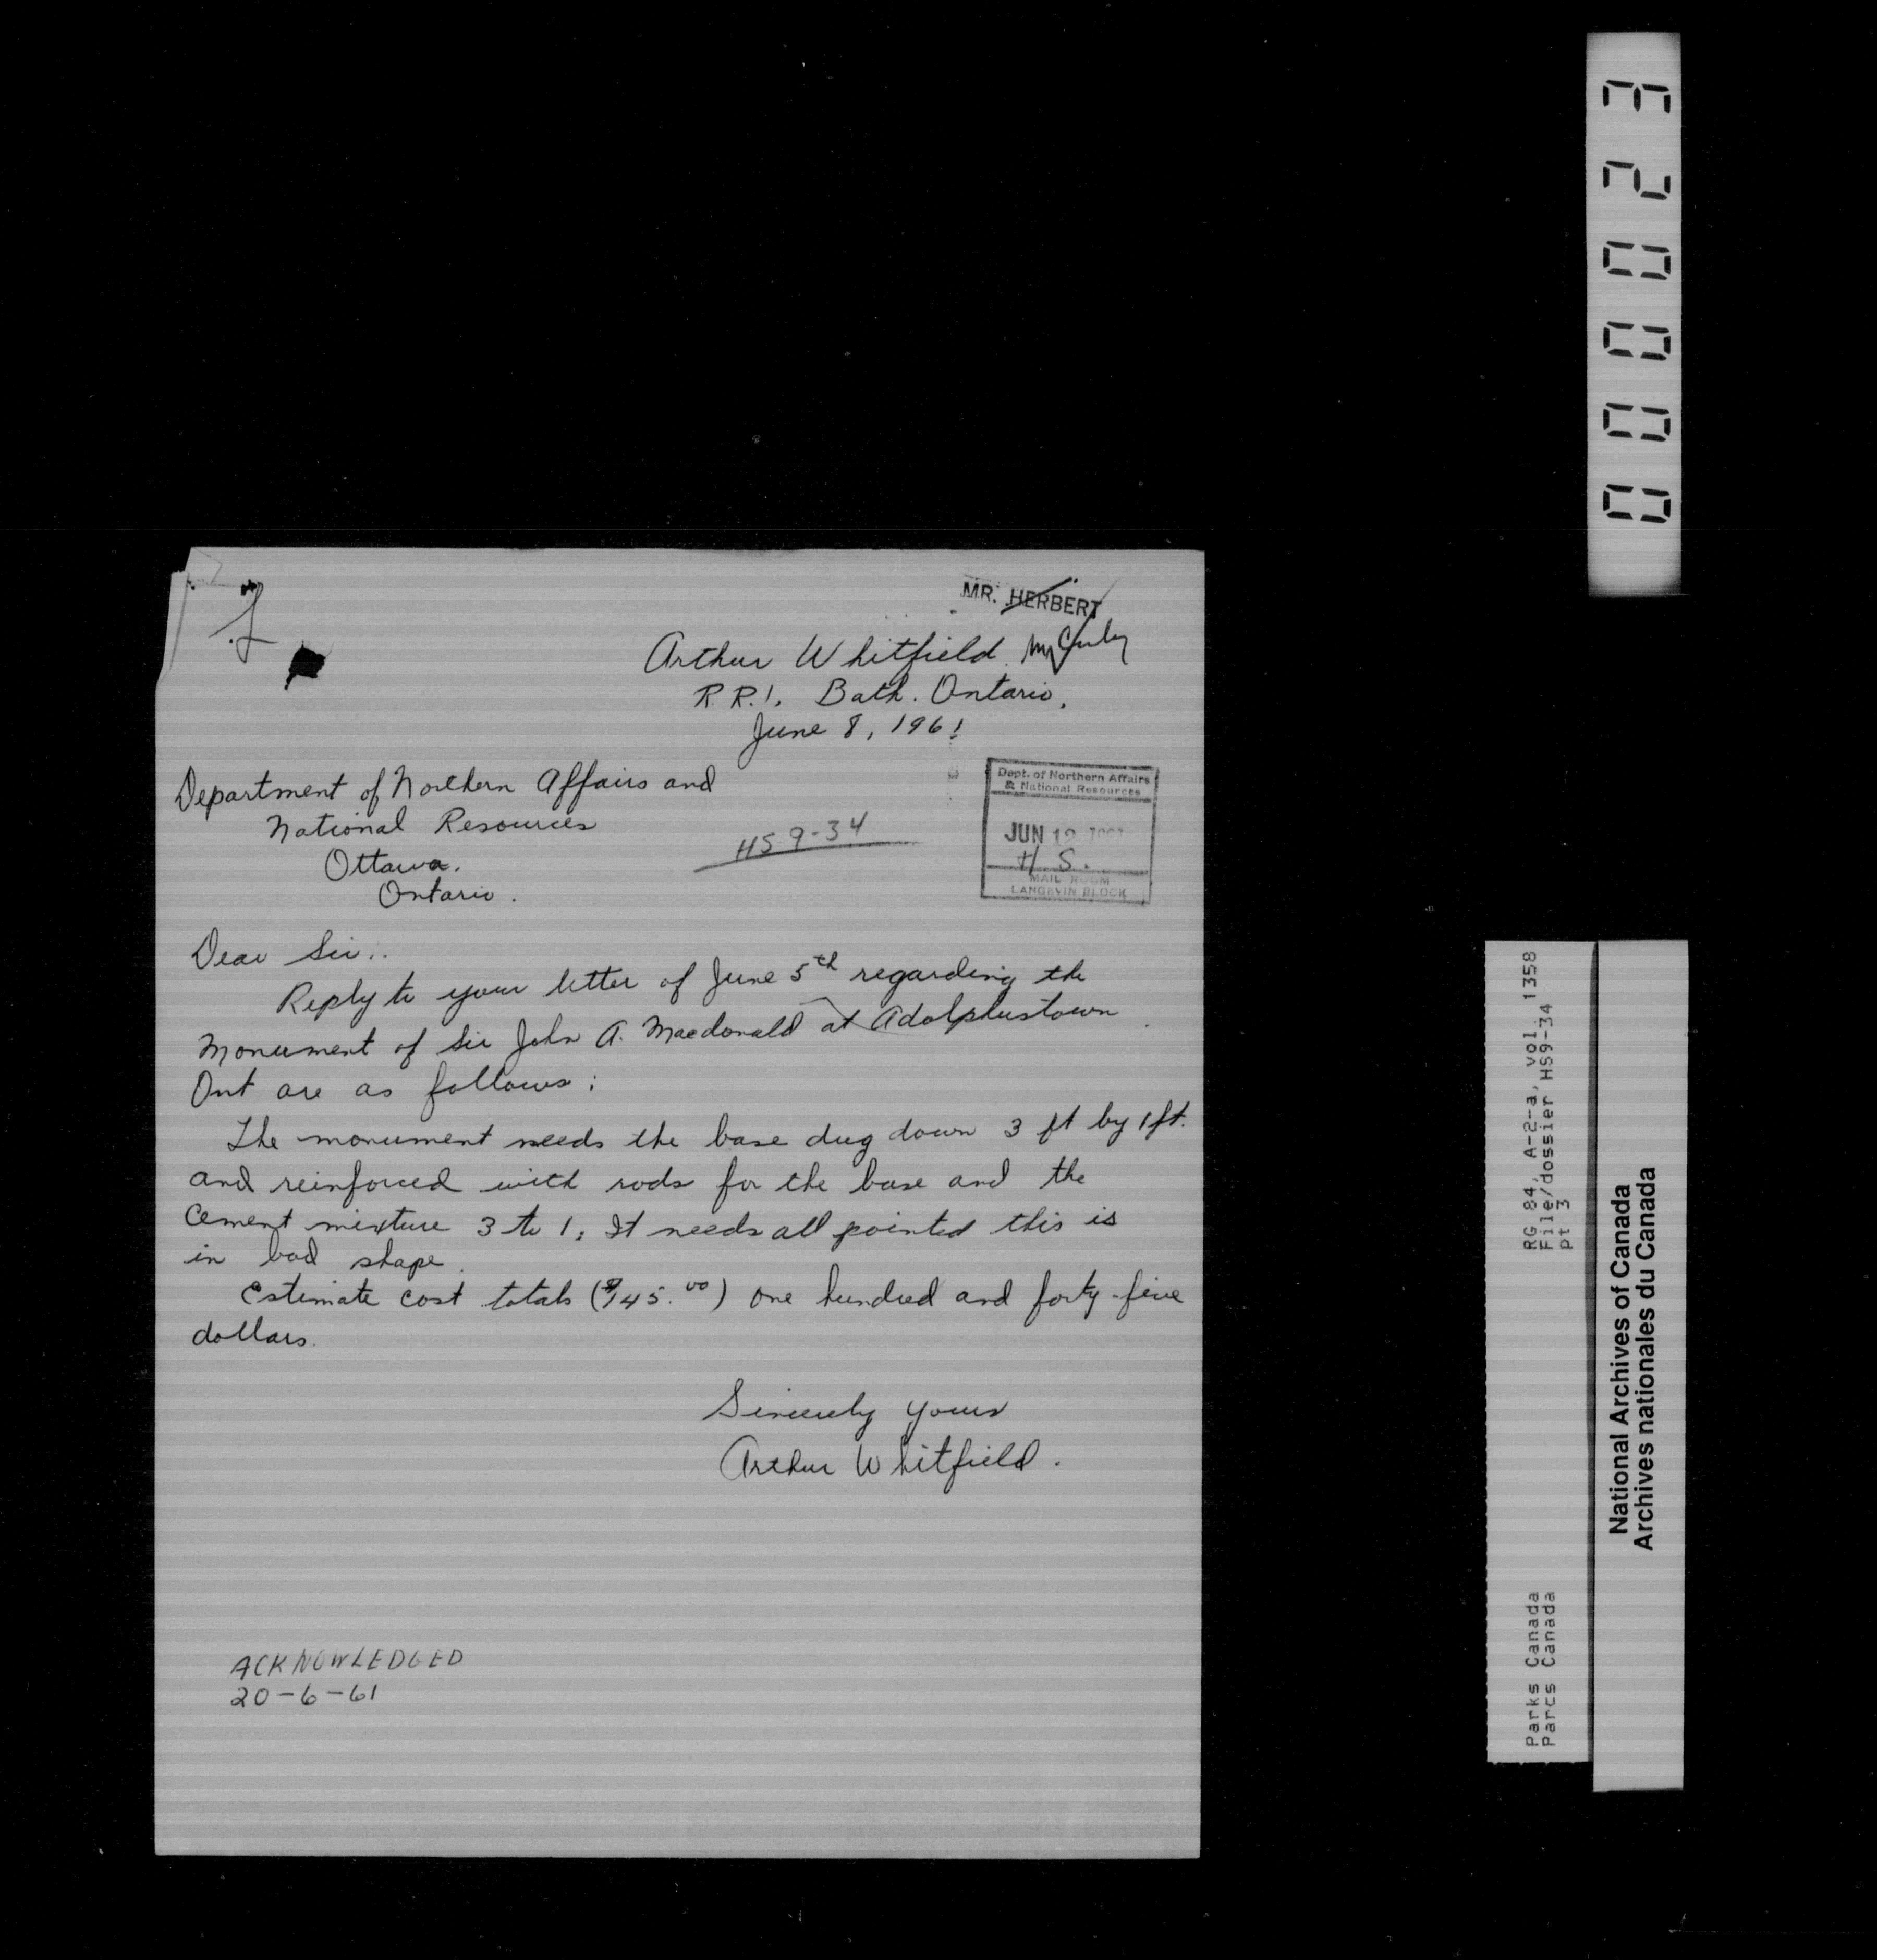 MR. HERBERT
Arthur Whitfield
R.R.1, Bath. Ontario,
June 8, 1961
Department of Northern Affairs and
National Resources
Ottawa.
Ontario.
HS-9-34
Dept. of Northern Affairs
& National Resources
JUN 12 1961
H S.
MAIL ROOM
LANGEVIN BLOCK
Dear Sir:.
Reply to your letter of June 5th regarding the
Monument of Sir John A. Macdonald at Adolphustown
Ont are as follows:
The monument needs the base dug down 3 ft by 1 ft.
and reinforced with rods for the base and the
Cement mixture 3 to 1; It needs all pointed this is
in bad shape.
Estimate cost totals ($145.00) one hundred and forty-five
dollars.
Sincerely yours
Arthur Whitfield.
ACKNOWLEDGED
20-6-61
000023
RG 84, A-2-a, vol. 1358
File/dossier HS9-34
pt 3
Parks Canada
Parcs Canada
National Archives of Canada
Archives nationales du Canada